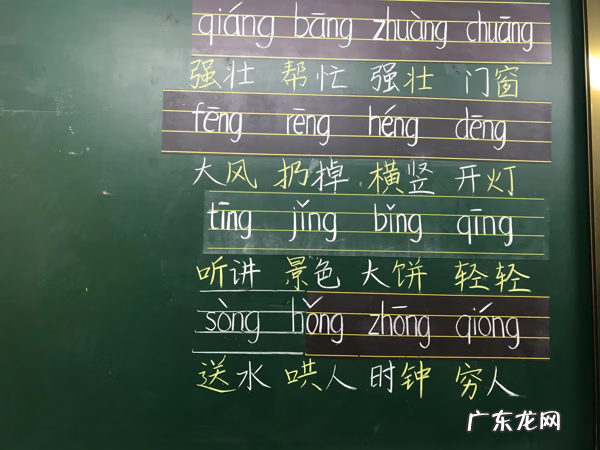 qiáng bāng zhuàng chuāng
强壮 帮忙 强壮 门窗
fēng rēng héng dēng
大风 扔掉 横竖 开灯
tīng jǐng bǐng qīng
听讲 景色 大饼 轻轻
sòng hǒng zhōng qióng
送水 哄人 时钟 穷人
广东龙网